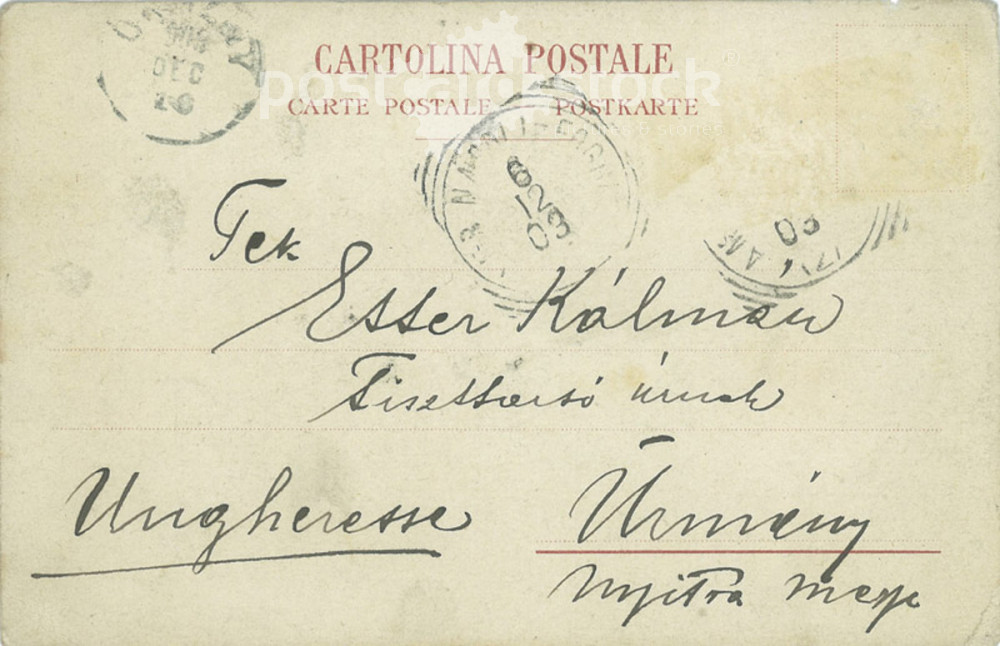 CARTOLINA POSTALE
CARTE POSTALE POSTKARTE
DEC
26
03
Tek
Esser Kálmán
Tiszttartó úrnak
Ungheresse
Ürmény
Nyitra megye